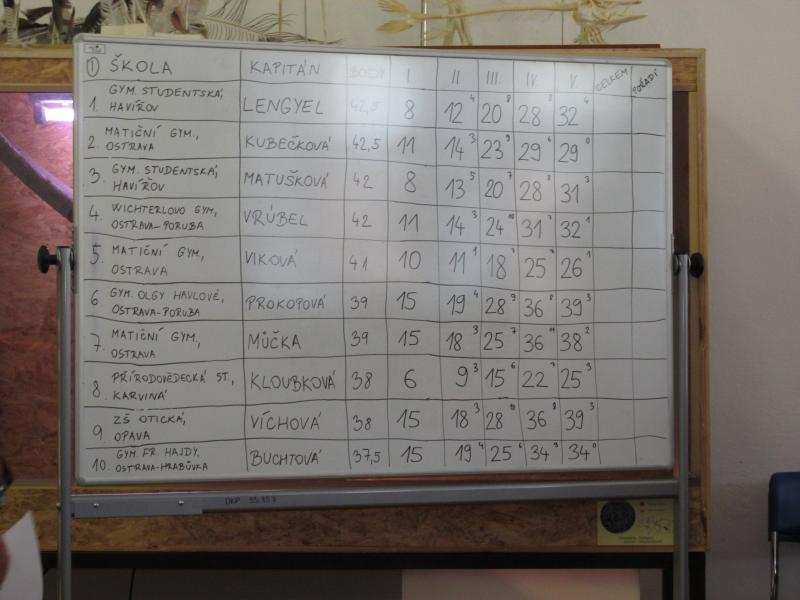 ① ŠKOLA KAPITÁN BODY I II III. IV. V. CELKEM POŘADÍ
1. GYM. STUDENTSKÁ,
HAVÍŘOV LENGYEL 42,5 8 12 4 20 8 28 32 4
2. MATIČNÍ GYM.,
OSTRAVA KUBEČKOVÁ 42,5 11 14 3 23 9 29 6 29 0
3. GYM. STUDENTSKÁ,
HAVÍŘOV MATUŠKOVÁ 42 8 13 5 20 7 28 8 31 3
4. WICHTERLOVO GYM,
OSTRAVA-PORUBA VRÚBEL 42 11 14 3 24 10 31 7 32 1
5. MATIČNÍ GYM,
OSTRAVA VIKOVÁ 41 10 11 1 18 7 25 7 26 1
6 GYM. OLGY HAVLOVÉ,
OSTRAVA-PORUBA PROKOPOVÁ 39 15 19 4 28 9 36 8 39 3
7. MATIČNÍ GYM,
OSTRAVA MŮČKA 39 15 18 3 25 7 36 11 38 2
8 PŘÍRODOVĚDECKÁ ST.,
KARVINÁ KLOUBKOVÁ 38 6 9 3 15 6 22 7 25 3
9 ZŠ OTICKÁ,
OPAVA VÍCHOVÁ 38 15 18 3 28 10 36 8 39 3
10. GYM. FR. HAJDY,
OSTRAVA-HRABŮVKA BUCHTOVÁ 37,5 15 19 4 25 6 34 9 34 0